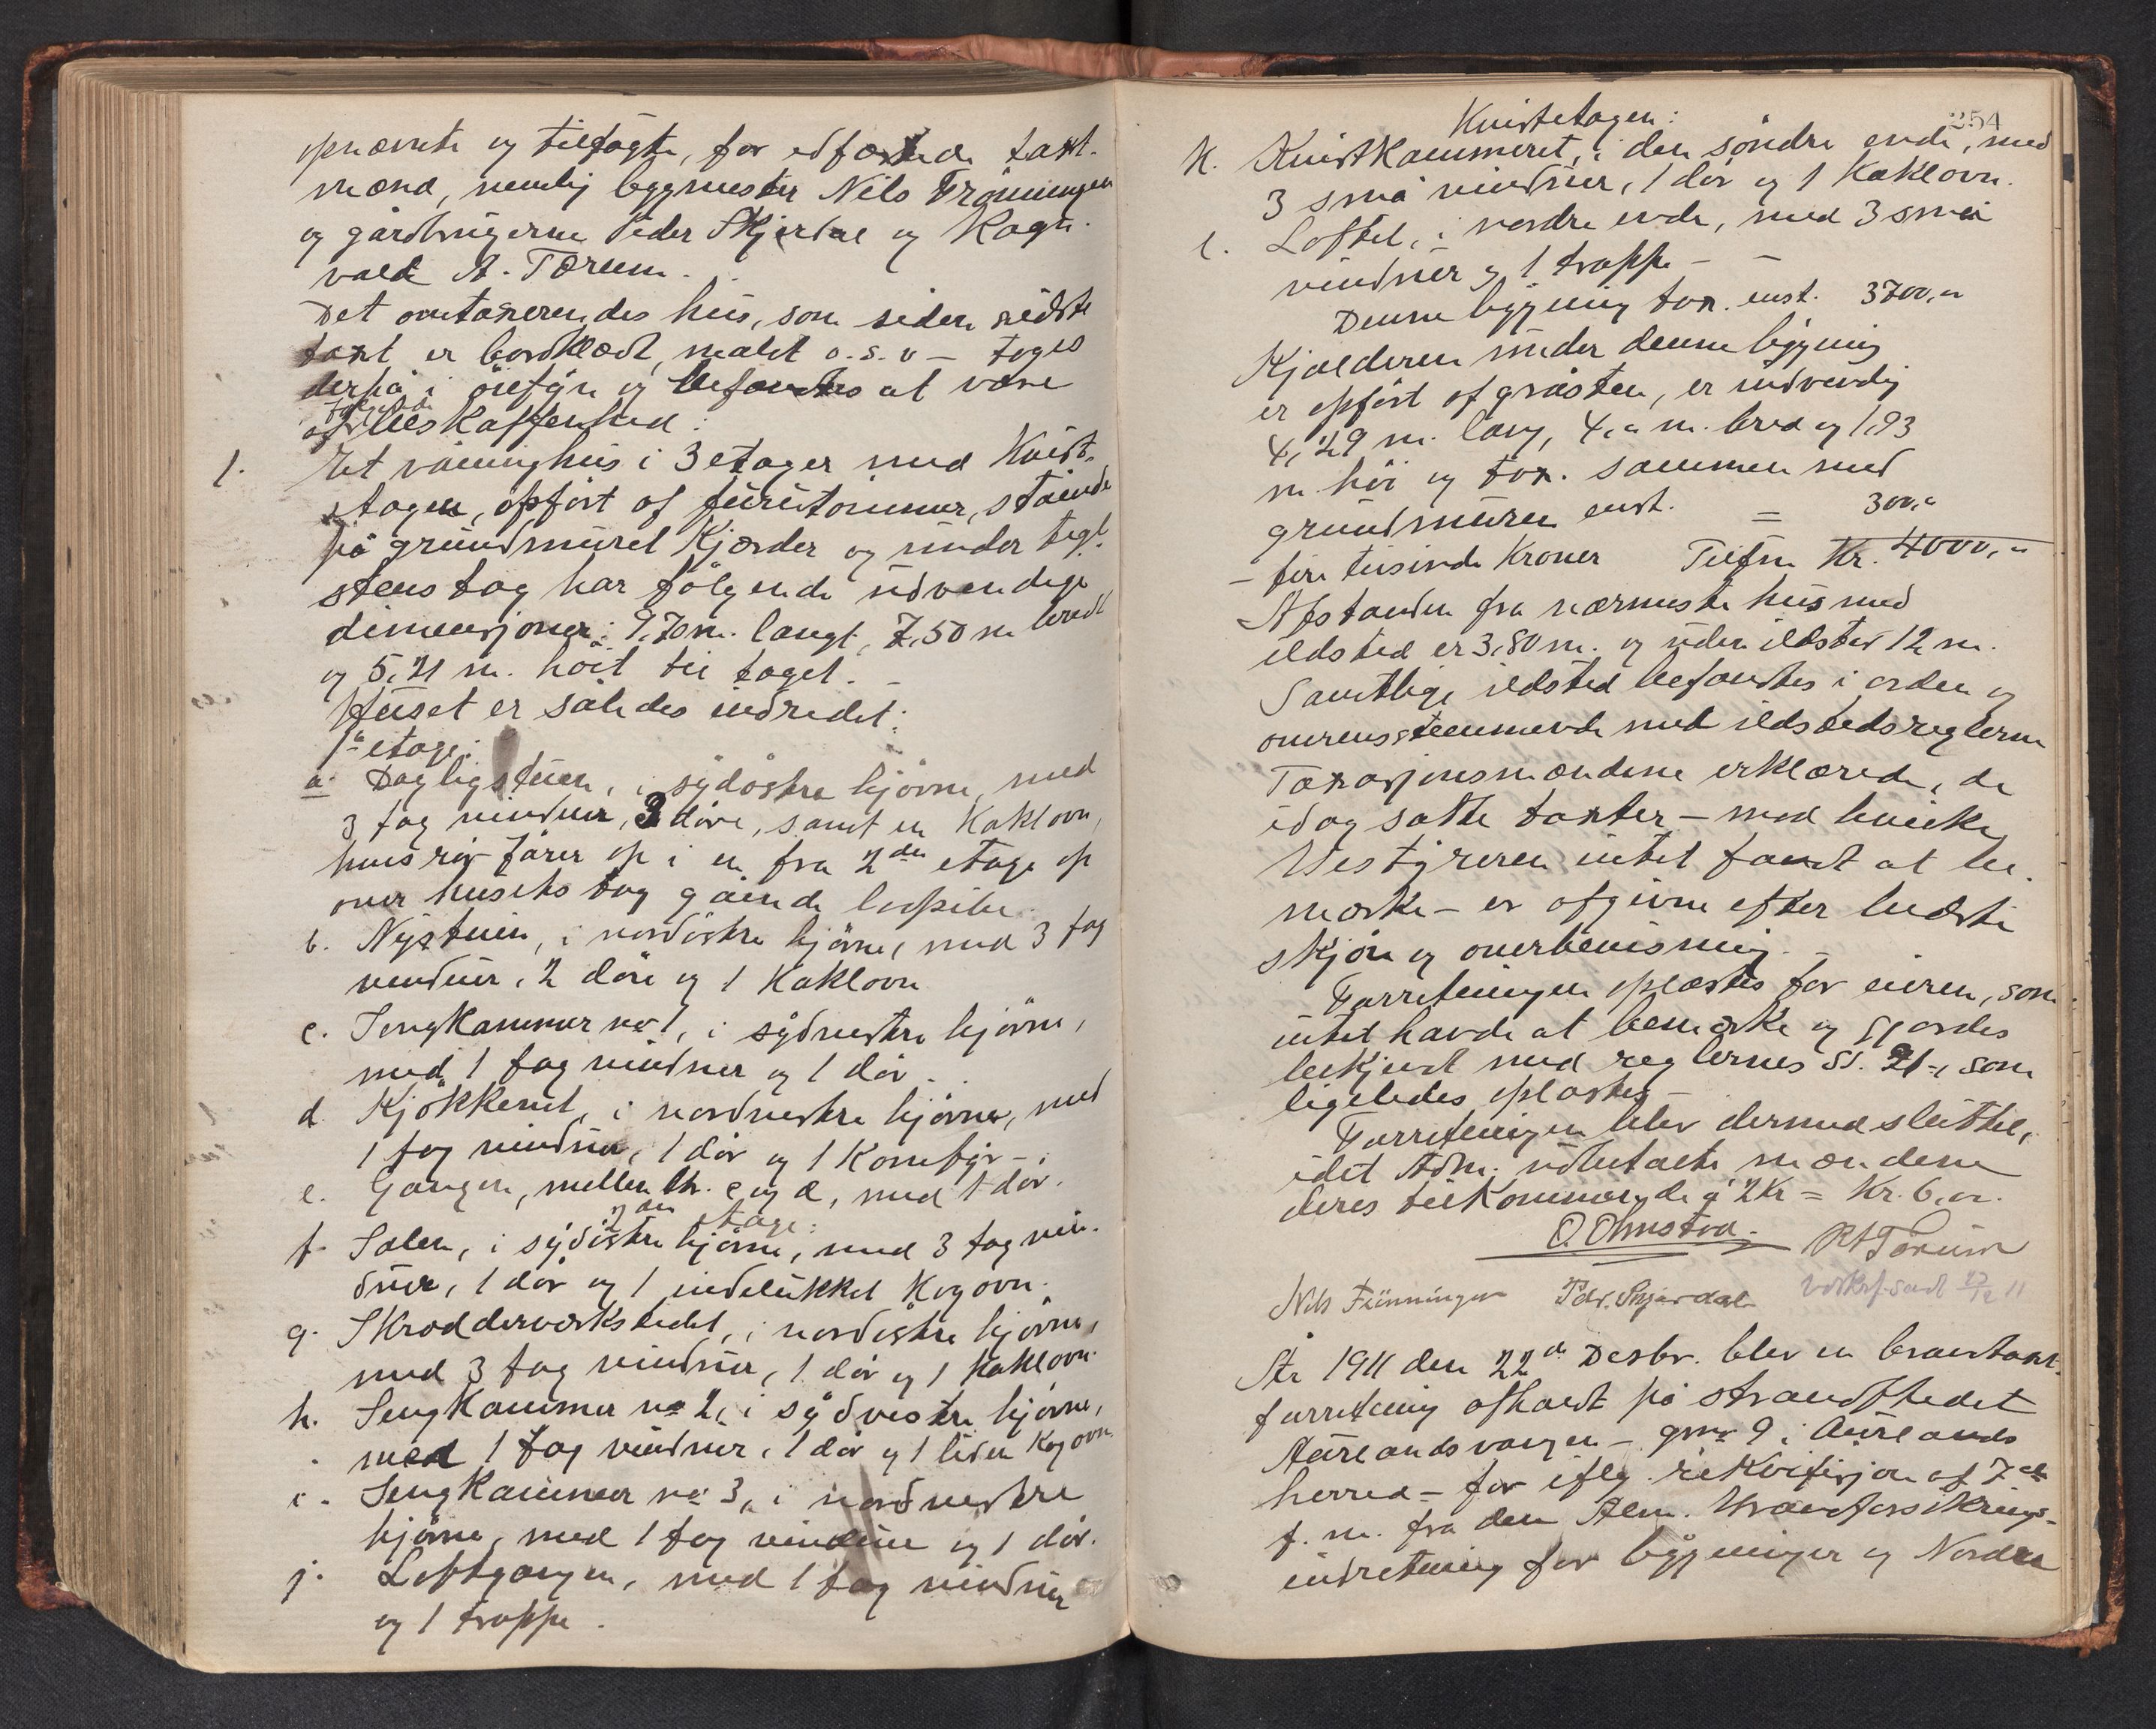 opnævnte og tilsagte, før edfæstede taxt-
mænd, nemlig bygmester Nils Frönningen
og gårdbrugerne Peder Skjerdal og Ragn-
vald A. Tærum.
Det omtaxerendes hus, som siden sidste
taxt er bordklædt, malet o.s.v – toges
derpå i öiesyn og befandtes at være
af følgende beskaffenhed:
1. Et våninghus i 3 etager med Kvist-
etagen, opfört af furutömmer, stående
på grundmuret Kjælder og under tegl-
stenstag har fölgende udvendige
dimensjoner: 9,70 m. langt, 7,50 m bredt
og 5,21 m. höit til taget. –
Huset er således indredet:
1ste etage:
a. Dagligstuen, i sydöstre hjörne, med
3 fag vinduer, 3 döre, samt en Kaklovn,
hvis rör förer op i en fra 2den etage op
over husets tag gående lufpibe.
b. Nystuen, i nordöstre hjörne, med 3 fag
vinduer, 2 döre og 1 Kaklovn
c. Sengkammer no 1, i sydvestre hjörne,
med 1 fag vinduer og 1 dör.
d. Kjökkenet, i nordvestre hjörne, med
1 fag vinduer, 1 dör og 1 Komfyr –
e. Gangen, mellem ltr. c og d, med 1 dör.
2den etage:
f. Salen, i sydöstre hjörne, med 3 fag vin-
duer, 1 dör og 1 indelukket Kogovn.
g. Skrædderværkstedet, i nordöstre hjörne,
med 3 fag vinduer, 1 dör og 1 Kaklovn.
h. Sengkammer no 2, i sydvestre hjörne,
med 1 fag vinduer, 1 dör og 1 liden Kogovn.
i. Sengkammer no 3, i nordvestre
hjörne, med 1 fag vinduer og 1 dör.
j. Loftgangen, med 1 fag vinduer
og 1 trappe.
254
Kvistetagen:
k. Kvistkammeret, i den söndre ende, med
3 små vinduer, 1 dör og 1 Kaklovn.
l. Loftet, i nordre ende, med 3 små
vinduer og 1 trappe –
Denne bygning tax. enst. 3700,"
Kjælderen under denne bygning
er opfört af gråsten, er indvendig
4,29 m. lang, 4," m. bred og 1,93
m. höi og tax. sammen med
grundmuren enst. = 300,"
– fire tusinde Kroner Tilsm. Kr. 4000,"
Afstanden fra nærmeste hus med
ildsted er 3,80 m. og uden ildsted 12 m.
Samtlige ildsted befandtes i orden og
overensstemmende med ildstedsreglerne
Taxasjonsmændene erklærede, de
idag satte taxter – mod hvilke
Bestyreren intet fandt at be-
mærke – er afgivne efter bedste
skjön og overbevisning.
Forretningen oplæstes for eieren, som
intet havde at bemærke og gjordes
bekjendt med reglernes §§. 21–, som
ligeledes oplæstes –
Forretningen blev dermed sluttet,
idet Adm. udbetalte mændene
deres tilkommende á 2 Kr = Kr. 6,".
O. Ohnstad. RA Tærum
Nils Frönningen Pdr. Skjerdal
Udskr. sendt 27/12 11
År 1911 den 22de Desbr. blev en brandtaxt-
forretning afholdt på strandstedet
Aurlandsvangen – gno 9 i Aurlands
herred – for iflg. rekvisisjon af 7de
f. m. fra den Alm. Brandforsikrings-
indretning for bygninger og Nordre